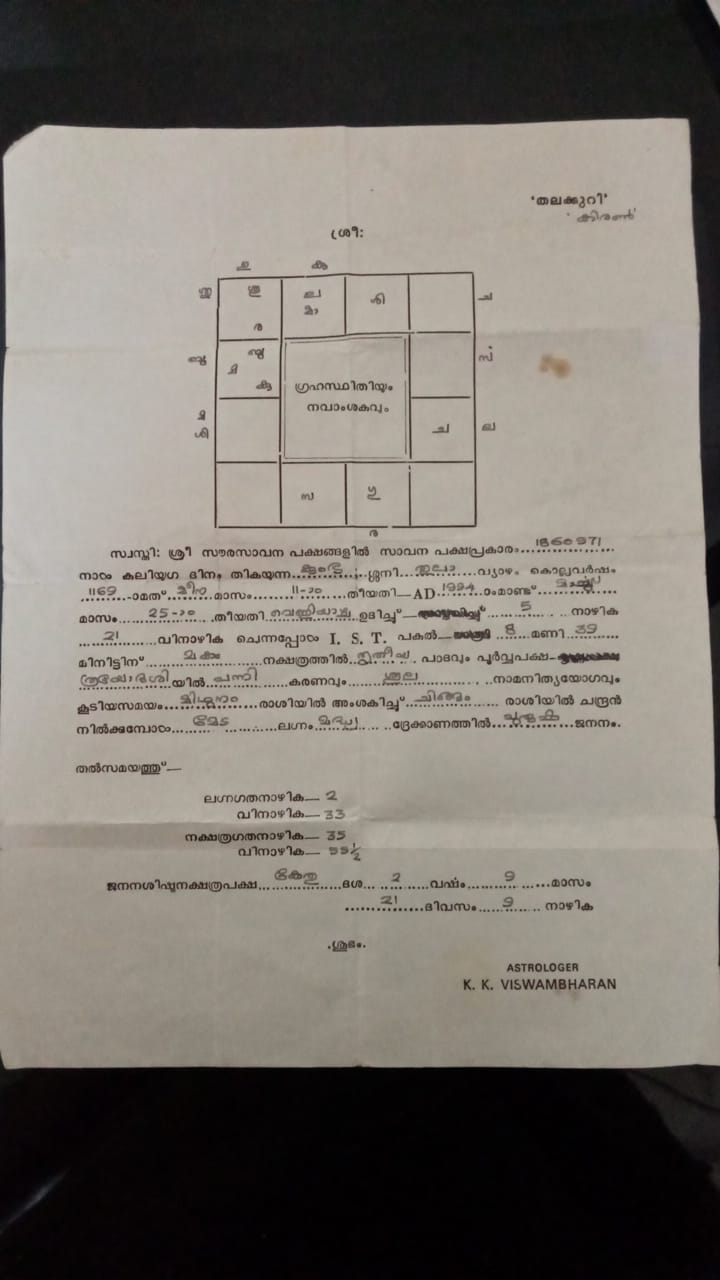 'തലക്കുറി'
'കിരൺ'
ശ്രീ:
ശു ല ശി
ര മാ
ഗ്രഹസ്ഥിതിയും
നവാംശകവും
ച
സ ഗു
ര
സ്വസ്തി: ശ്രീ സൗരസാവന പക്ഷങ്ങളിൽ സാവന പക്ഷപ്രകാരം 1860971
നാൾ കലിയുഗ ദിനം തികയുന്ന കുംഭ ശ്ശനി തുലാ വ്യാഴം കൊല്ലവർഷം
1169 -ാമത് മീന മാസം 11-ാം തീയതി— AD 1994 ാംമാണ്ട് മാർച്ച്
മാസം 25-ാം തീയതി വെള്ളിയാഴ്ച ഉദിച്ച് 5 നാഴിക
21 വിനാഴിക ചെന്നപ്പോൾ I. S. T. പകൽ— 8 മണി 39
മിനിട്ടിന് മകം നക്ഷത്രത്തിൽ തൃതീയ പാദവും പൂർവ്വപക്ഷ—
ത്രയോദശി യിൽ പന്നി കരണവും ശൂല നാമനിത്യയോഗവും
കൂടിയസമയം മിഥുനം രാശിയിൽ അംശകിച്ച് ചിങ്ങം രാശിയിൽ ചന്ദ്രൻ
നിൽക്കുമ്പോൾ മേട ലഗ്നം മദ്ധ്യ ദ്രേക്കാണത്തിൽ ജനനം.
തൽസമയത്ത്—
ലഗ്നഗതനാഴിക— 2
വിനാഴിക— 33
നക്ഷത്രഗതനാഴിക— 35
വിനാഴിക— 55½
ജനനശിഷ്ടനക്ഷത്രപക്ഷ കേതു ദശ 2 വർഷം 9 മാസം
21 ദിവസം 9 നാഴിക
.ശുഭം.
ASTROLOGER
K. K. VISWAMBHARAN